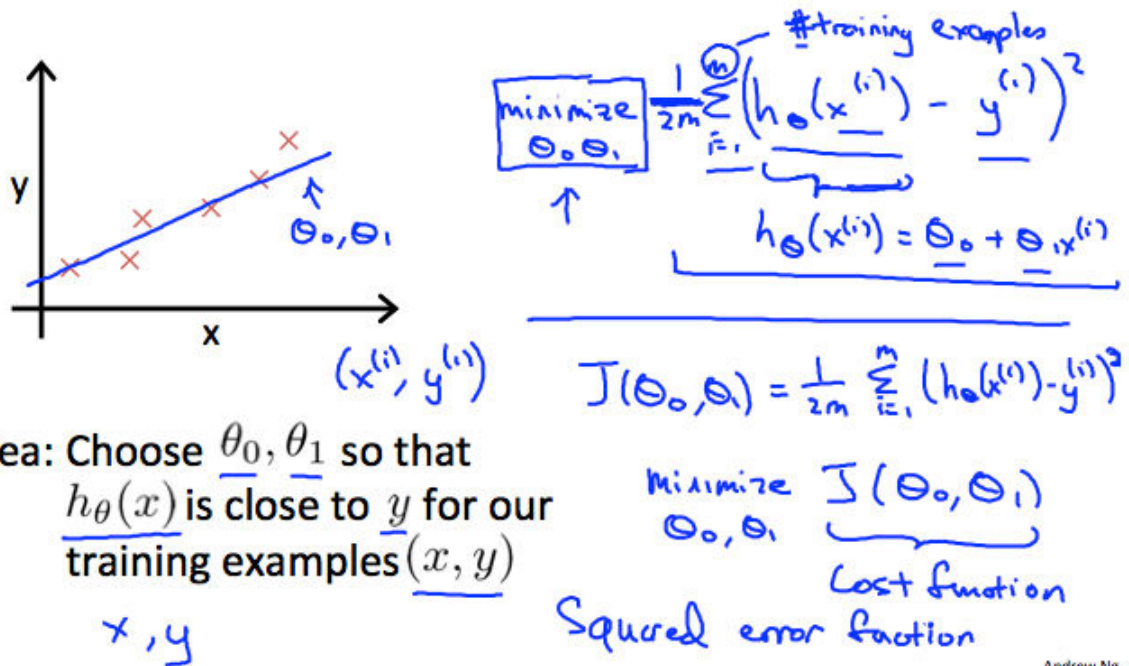 y
x
θ₀, θ₁
(x⁽ⁱ⁾, y⁽ⁱ⁾)
ea: Choose θ₀, θ₁ so that
h_θ(x) is close to y for our
training examples (x, y)
x, y
#training examples
minimize
θ₀ θ₁
1/2m Σ_{i=1}^{m} (h_θ(x⁽ⁱ⁾) - y⁽ⁱ⁾)²
h_θ(x⁽ⁱ⁾) = θ₀ + θ₁x⁽ⁱ⁾
J(θ₀, θ₁) = 1/2m Σ_{i=1}^{m} (h_θ(x⁽ⁱ⁾) - y⁽ⁱ⁾)²
minimize J(θ₀, θ₁)
θ₀, θ₁
Cost function
Squared error faction
Andrew Ng